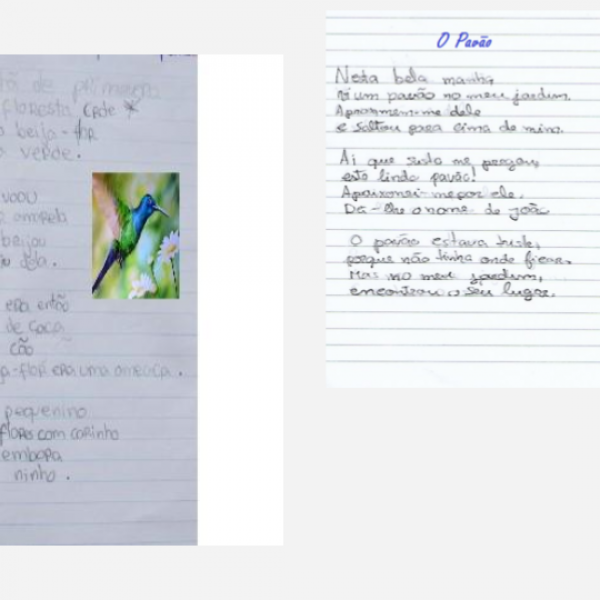 de primavera
floresta
beija-flor
verde.
voou
amarela
beijou
dela.
era então
de caça
cão
-flor era uma ameaça.
pequenino
flores com carinho
embora
ninho.
O Pavão
Nesta bela manhã
vi um pavão no meu jardim.
Aproximem-me dele
e saltou para cima de mim.
Ai que susto me pregou
este lindo pavão!
Apaixonei-me por ele.
Dá-lhe o nome de João
O pavão estava triste,
porque não tinha onde ficar.
Mas no meu jardim,
encontrou o seu lugar.